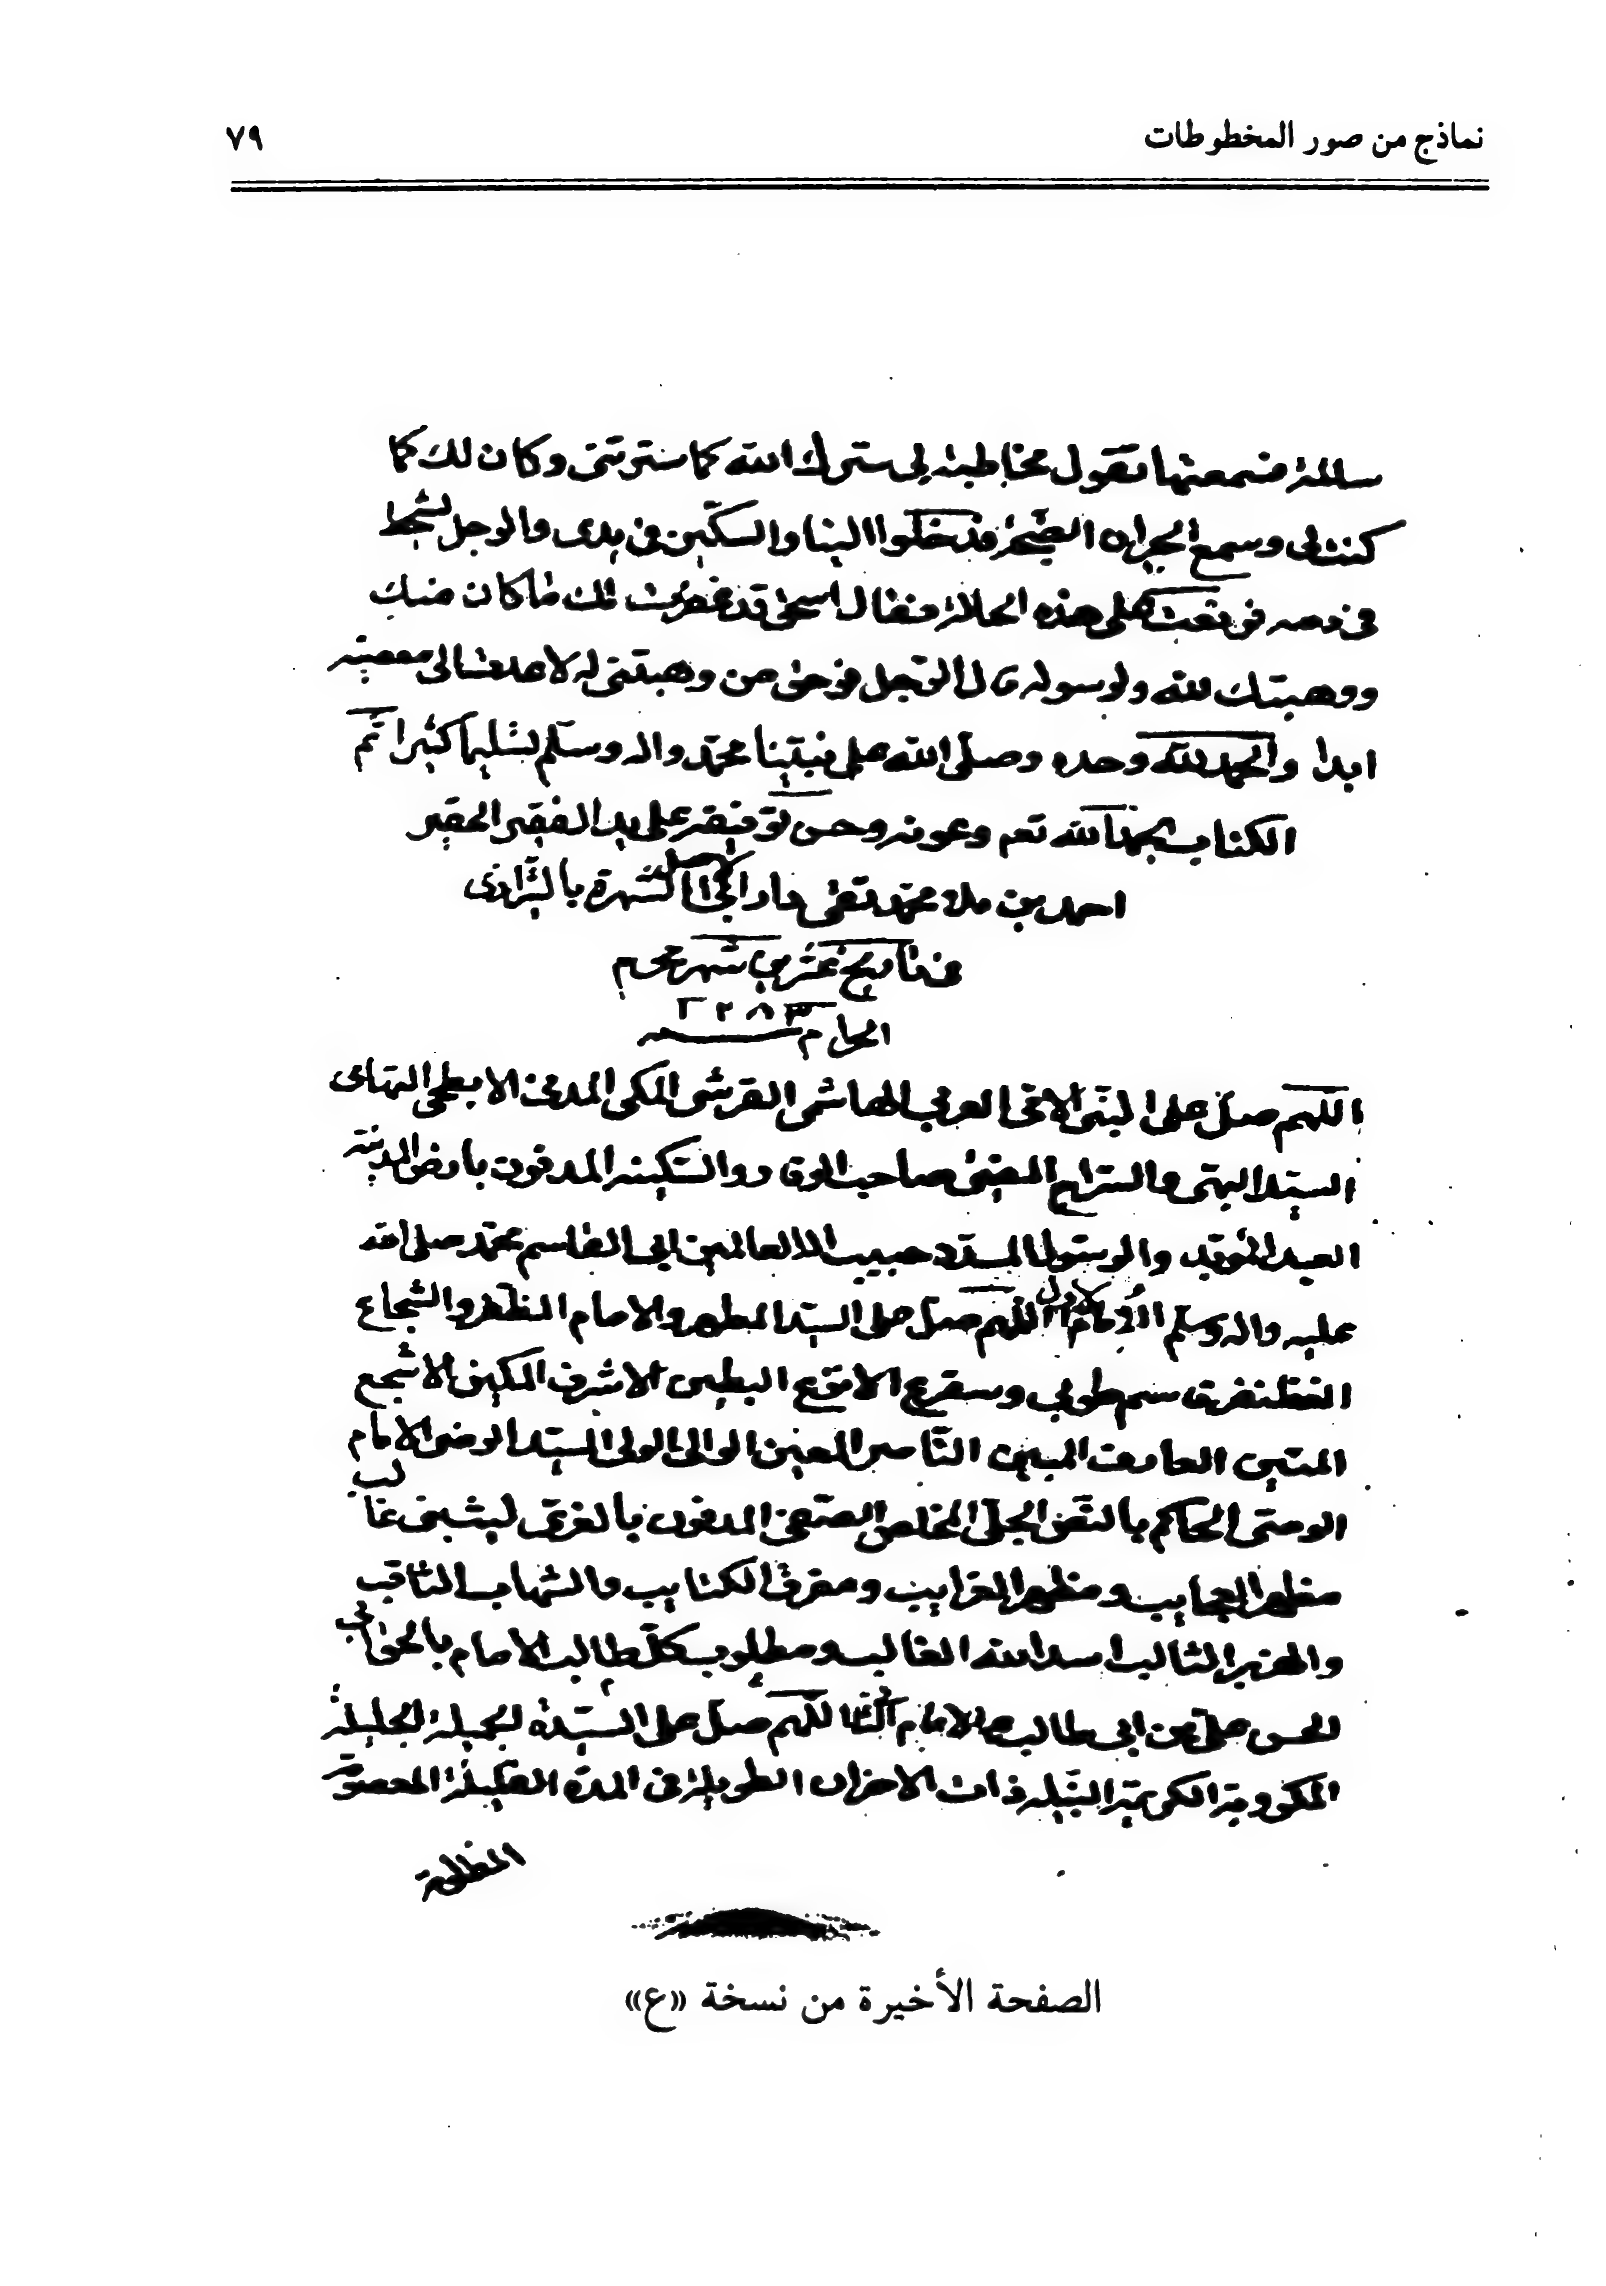 نماذج من صور المخطوطات ٧٩
سالمة فسمعتها تقول مخاطبة لى سترك الله كما سترتنى وكان لك كما
كنت لى وسمع الجيران الضجة فدخلوا الينا والسكين فى يدى والرجل
فى دمه على هذه الحالة فقال قد غفرت لك ما كان منك
ووهبتك لله ولرسوله قال الرجل فوحق من وهبتنى له لا عدت الى معصيته
ابدا والحمد لله وحده وصلى الله على نبينا محمد واله وسلم تسليما كثيرا تم
الكتاب بحمد الله تعم وعونه وحسن توفيقه على يد الفقير الحقير
احمد بن ملا محمد تقى الشهرة بالشيرازى
فى تاريخ عشر من شهر محرم
الحرام ١٢٨٣
اللهم صل على النبى الامى العربى الهاشمى القرشى المكى المدنى الابطحى التهامى
السيد البهى والسراج المضىء صاحب الوقار والسكينه المدفون بارض المدينة
العبد المؤيد والرسول المسدد حبيب اله العالمين ابى القاسم محمد صلى الله
عليه واله وسلم الامام الاول اللهم صل على السيد المطهر والامام المظفر والشجاع
الغظنفر سم طوبى وسقر الانزع البطين الاشرف المكين الاشجع
المتين العارف المبين الناصر المعين الوالى الولى السيد الرضى الامام
الوصى الحاكم بالنص الجلى المخلص الصفى المدفون بالغرى ليث بنى غالب
مظهر العجايب ومظهر الغرايب ومفرق الكتايب والشهاب الثاقب
والهزبر السالب اسد الله الغالب ومطلوب كل طالب الامام بالحق ابى
الحسن على بن ابى طالب الامام الثانى اللهم صل على السيدة الجميلة الجليلة
المكرومة الكريمة النبيله ذات الاحزان الطويلة فى المدة القليلة المعصومة
المظلومة
الصفحة الأخيرة من نسخة «ع»